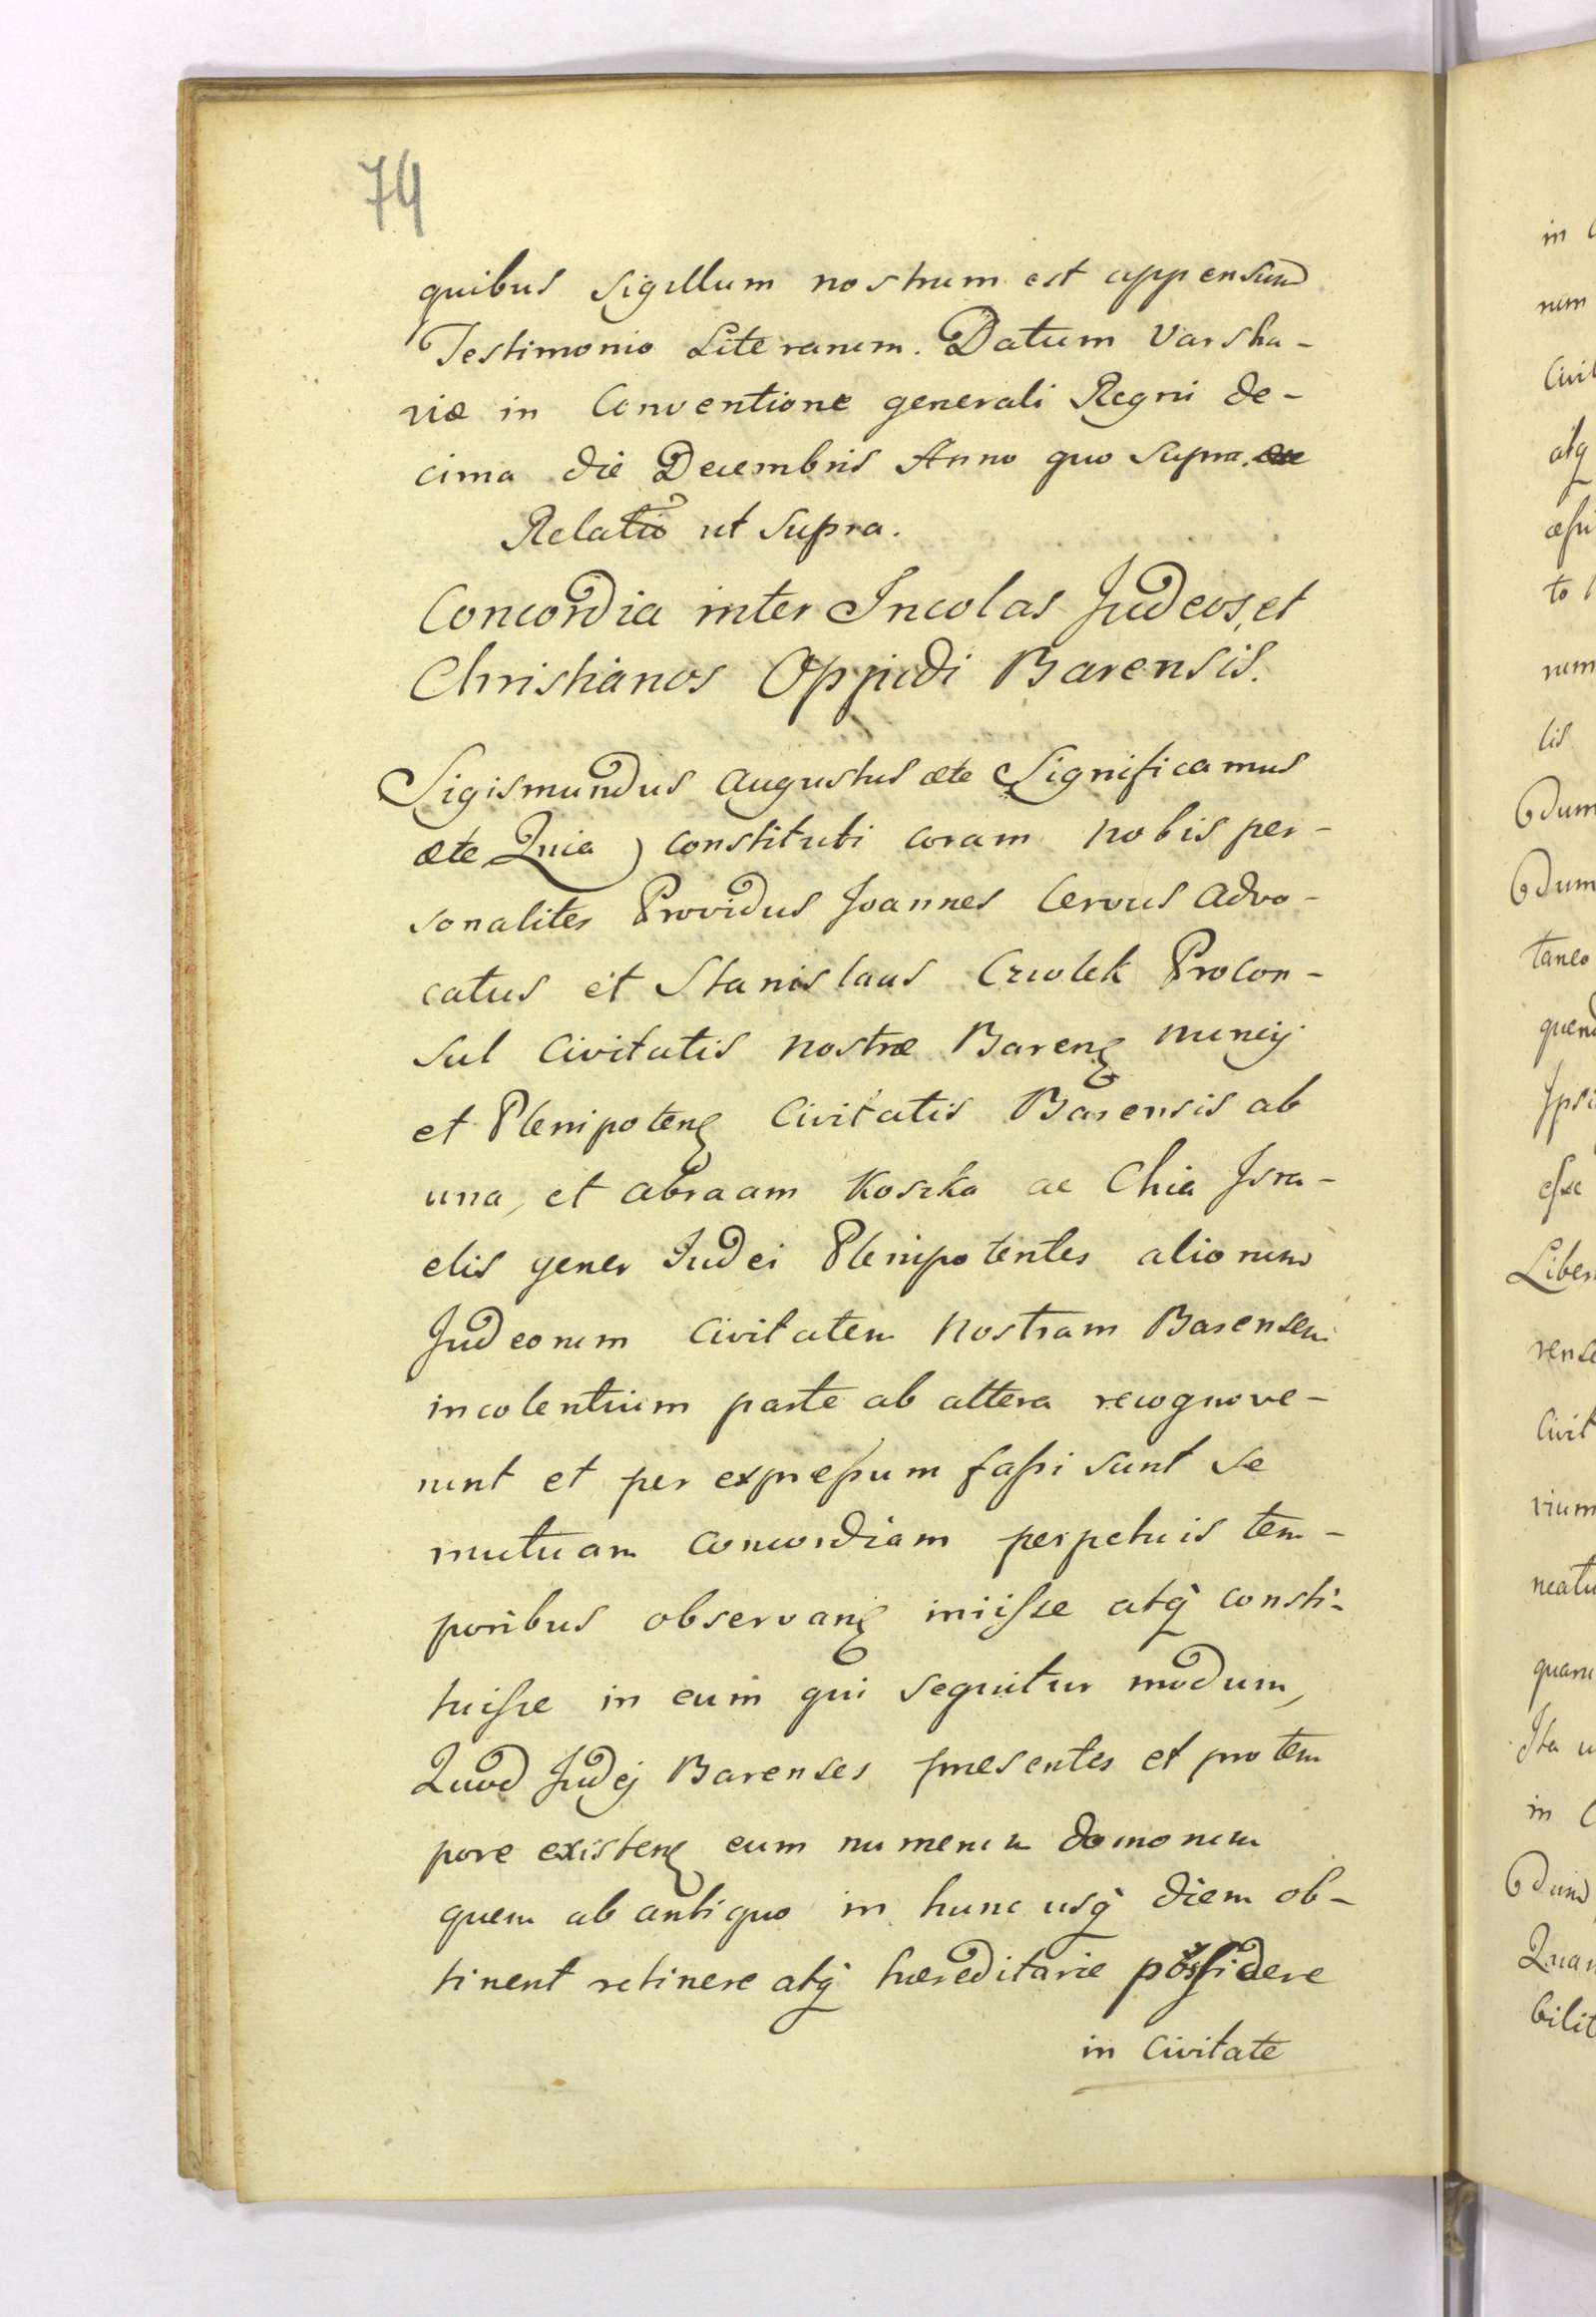 74
quibus sigillum nostrum est appensum
Testimonio Literarum. Datum Varsha-
viæ in Conventione generali Regni de-
cima die Decembris Anno quo supra.
Relatio ut supra.
Concordia inter Incolas Judeos, et
Christianos Oppidi Barensis.
Sigismundus Augustus ætc Significamus
ætc Quia constituti coram nobis per-
sonaliter Providus Joannes Cervus Advo-
catus et Stanislaus Cziolek Procon-
sul Civitatis nostræ Barenꝫ nuncij
et Plenipotenꝫ Civitatis Barensis ab
una, et Abraam Koszka ac Chia Isra-
elis gener Iudei Plenipotentes aliorum
Judeorum Civitatem nostram Barensem
incolentium parte ab altera recognove-
runt et per expreſsum faſsi sunt se
mutuam concordiam perpetuis tem-
poribus observanꝫ iniiſse atq̀ consti-
tuiſse in eum qui sequitur modum,
Quod Judej Barenses presentes et pro tem
pore existenꝫ eum numerum domorum
quem ab antiquo in hunc usq̀ diem ob-
tinent retinere atq̀ hæreditarie possidere
in Civitate
in
num
Civit
atq
to
num
lis
taneo
Ipsi
eſse
Liber
rense
Civit
rium
neatu
quam
Ita
in
bilit